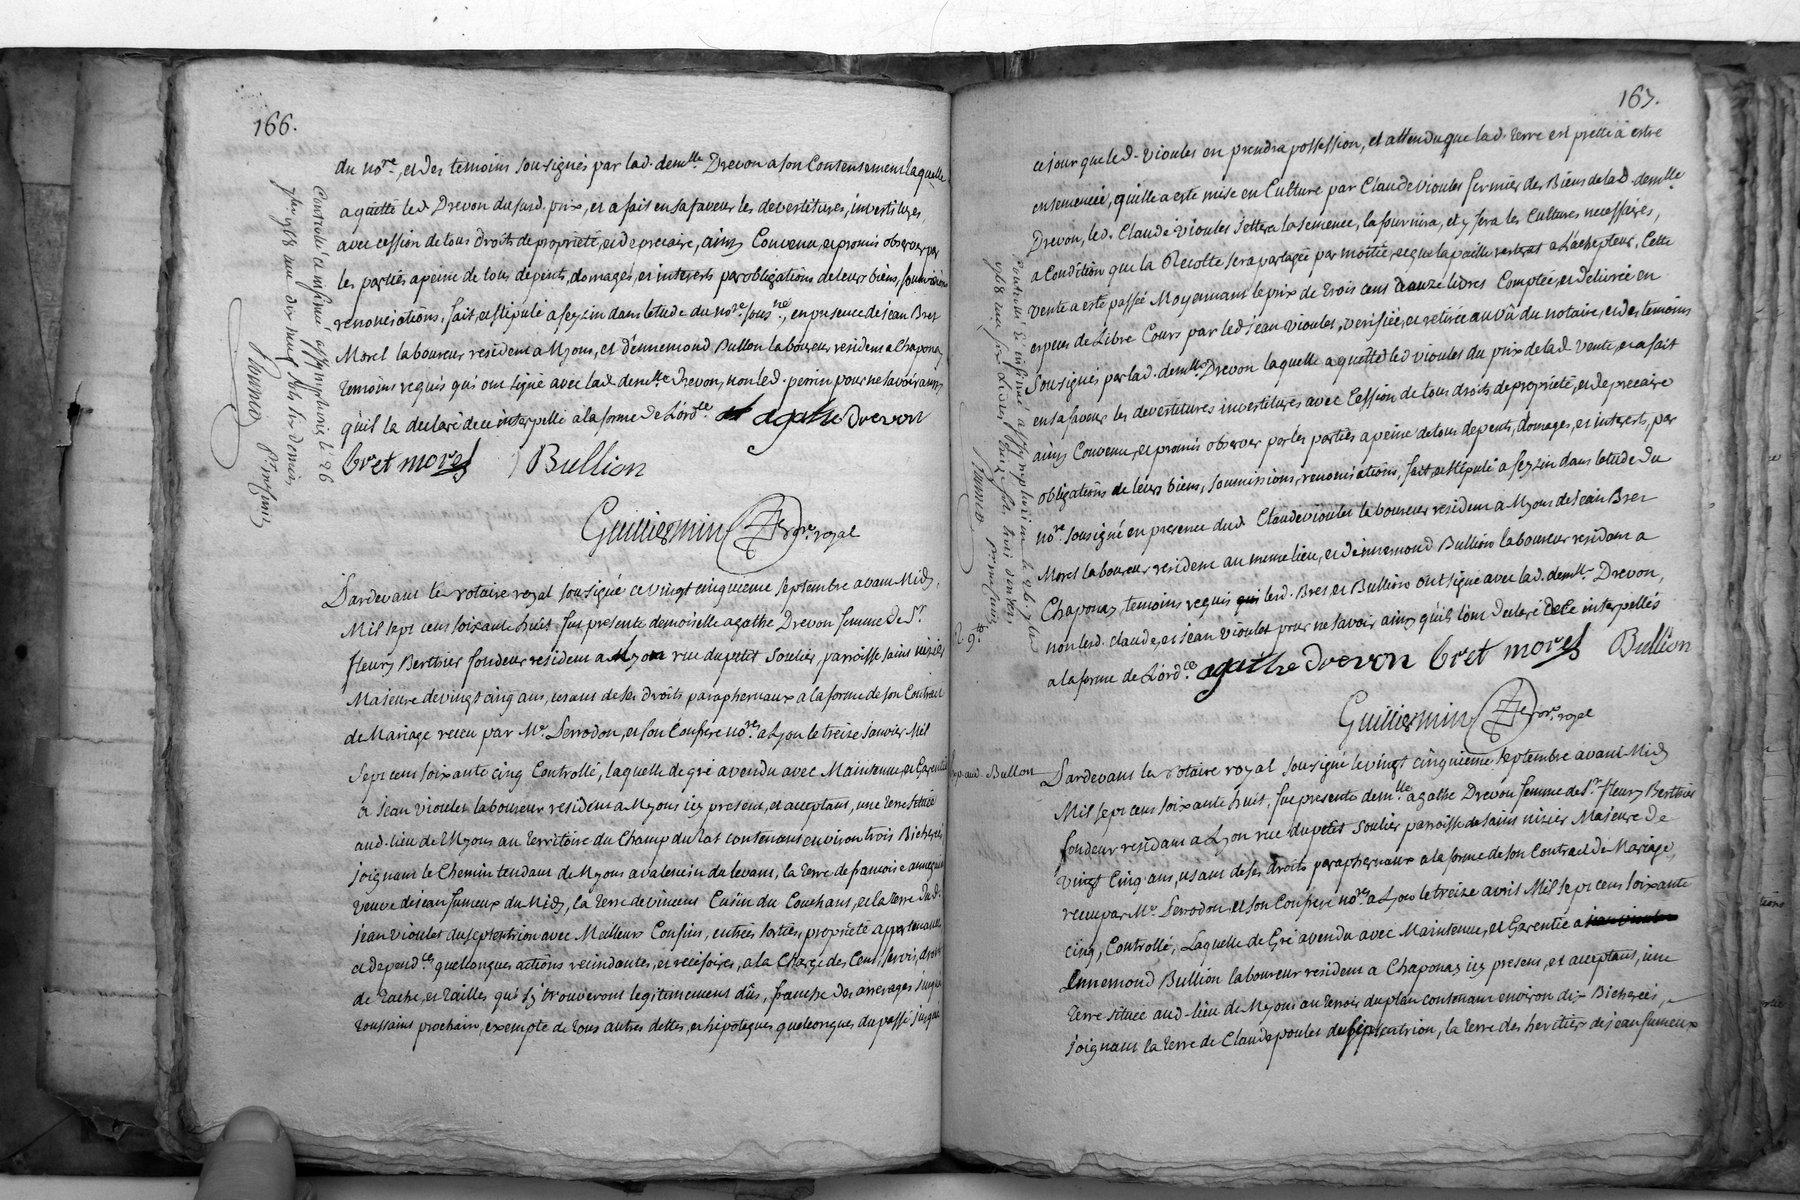 166.
du no.re, et des temoins sousignés par lad. demlle Drevon a son Consentement laquelle
a quetté led. Drevon du surd. prix, et a fait en sa faveur les devestitures, investitures,
avec cession de tous droits de proprieté, et de precaire, ainsy Convenu, et promis observer par
les parties a peine de tous dépents, domages, et interests par obligations de leurs biens, soumissions
renonciations, fait, et stipulé a feyzin dans letude du no.re sous.né, en presence de jean Bret
Morel laboureur resident a Myons, et d'ennemond Bullion laboureur resident a Chaponay
temoins requis qui ont signé avec lad. demlle Drevon, non led. perrin pour ne savoir ainsy
qu'il la declaré de ce interpellé a la forme de L'ord.ce agathe Drevon
bret morel Bullion
Guilliermin no.re royal
Controlé et insinué a st symphorien le 26
7bre 1768 reçu
Pardevant le Notaire royal sousigné ce vingt cinquieme septembre avant Midy,
Mil sept cens soixante huit fut presente demoiselle agathe Drevon femme de Sr.
fleury Berthier fondeur resident a Lyon rue du petit Soulier, parroisse saint nizier
Majeure de vingt cinq ans, usant de ses droits paraphernaux a la forme de son Contract
de Mariage receu par Me. Perrodon, et son Confrere no.res a Lyon le treize janvier Mil
Sept cens soixante cinq Controllé, laquelle de gré a vendu avec Maintenue, et Garentie
a jean vioulet laboureur resident a Myons icy present, et acceptant, une terre située
aud. lieu de Myons au territoire du Champ du lat contenant environ trois Bicherées
joignant le Chemin tendant de Myons a valencin du levant, la terre de francoise
veuve de jean fumeux du Midy, la terre de vincent Cusin du Couchant, et la terre dud.
jean vioulet du septentrion avec Meilleurs Confins, entrées sorties, proprieté appartenances
et depend.ces, quelconques actions recindantes, et recisoires, a la Charge des Cens, servis, droits
de tache, et tailles qui s'y trouveront legitimement dûs, franche des arrerages jusqu'a
toussaint prochain, exempte de tous autres dettes, et hipoteques quelconques du passé jusqua
167.
ce jour que led. vioulet en prendra possession, et attendu que lad. terre est prette a estre
ensemencée, quelle a esté mise en Culture par Claude vioulet fermier des Biens de lad. demlle
Drevon, led. Claude vioulet jettera la semence, la fournira, et y fera les Cultures necessaires,
a Condition que la Recolte sera partagée par moittié, et que la paille restera a L'achepteur, Cette
vente a esté passée Moyennant le prix de trois cens douze livres Comptée, et delivrée en
especes de Libre Cours par led. jean vioulet, verifiée, et retirée au vû du notaire, et des temoins
Sousignés par lad. demlle Drevon laquelle a quetté led. vioulet du prix de lad. vente, et a fait
en sa faveur les devestitures investitures avec Cession de tous droits de proprieté, et de precaire
ainsy Convenu, et promis observer par les parties a peine de tous depents, domages, et interests, par
obligations de leurs biens, soumissions, renonciations, fait, et stipulé a feyzin dans letude du
no.re sousigné en presence dud. Claude vioulet laboureur resident a Myons de jean Bret
Morel laboureur resident au meme lieu, et d'ennemond Bullion laboureur resident a
Chaponay temoins requis lesd. Bret et Bullion ont signé avec lad. demlle Drevon,
non lesd. claude, et jean vioulet pour ne savoir ainsy qu'ils l'ont declaré de ce interpellés
a la forme de L'ord.ce agathe Drevon bret morel Bullion
Guilliermin no.re royal
aud. Bullion
Pardevant le Notaire royal sousigné le vingt cinquieme septembre avant Midy
Mil sept cens soixante huit, fut presente demlle agathe Drevon femme de Sr. fleury Berthier
fondeur resident a Lyon rue du petit Soulier parroisse de saint nizier Majeure de
vingt cinq ans, usant de ses droits paraphernaux a la forme de son Contract de Mariage,
receu par Me. Perrodon, et son Confrere no.res a Lyon le treize avril Mil sept cens soixante
cinq, Controllé, Laquelle de Gré a vendu avec Maintenue, et Garentie a
Ennemond Bullion laboureur resident a Chaponay icy present, et acceptant, une
terre située aud. lieu de Myons au terroir du plan contenant environ dix Bicherées,
joignant la terre de Claude poulet du septentrion, la terre des heritiers de jean fumeux